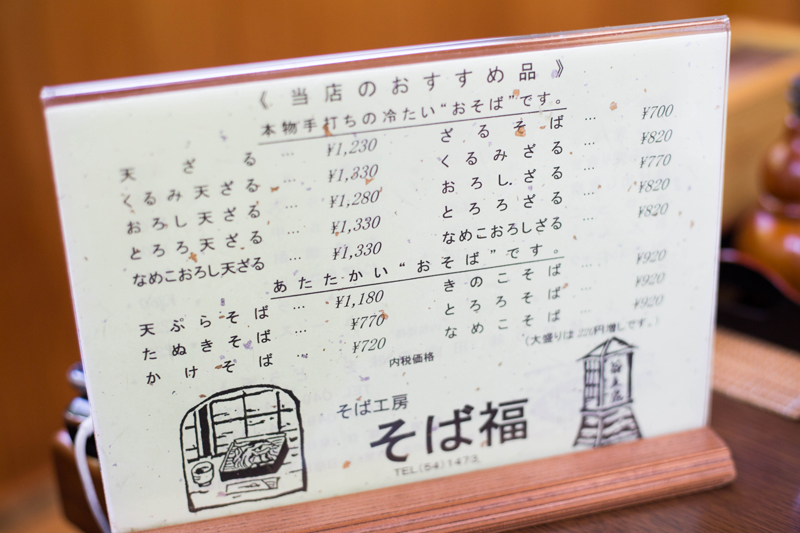 《当店のおすすめ品》
本物手打ちの冷たい“おそば”です。
天ざる … ¥1,230
くるみ天ざる … ¥1,330
おろし天ざる … ¥1,280
とろろ天ざる … ¥1,330
なめこおろし天ざる … ¥1,330
ざるそば … ¥700
くるみざる … ¥820
おろしざる … ¥770
とろろざる … ¥820
なめこおろしざる … ¥820
あたたかい“おそば”です。
天ぷらそば … ¥1,180
たぬきそば … ¥770
かけそば … ¥720
きのこそば … ¥920
とろろそば … ¥920
なめこそば … ¥920
(大盛りは220円増しです。)
内税価格
そば工房
そば福
TEL(54)1473